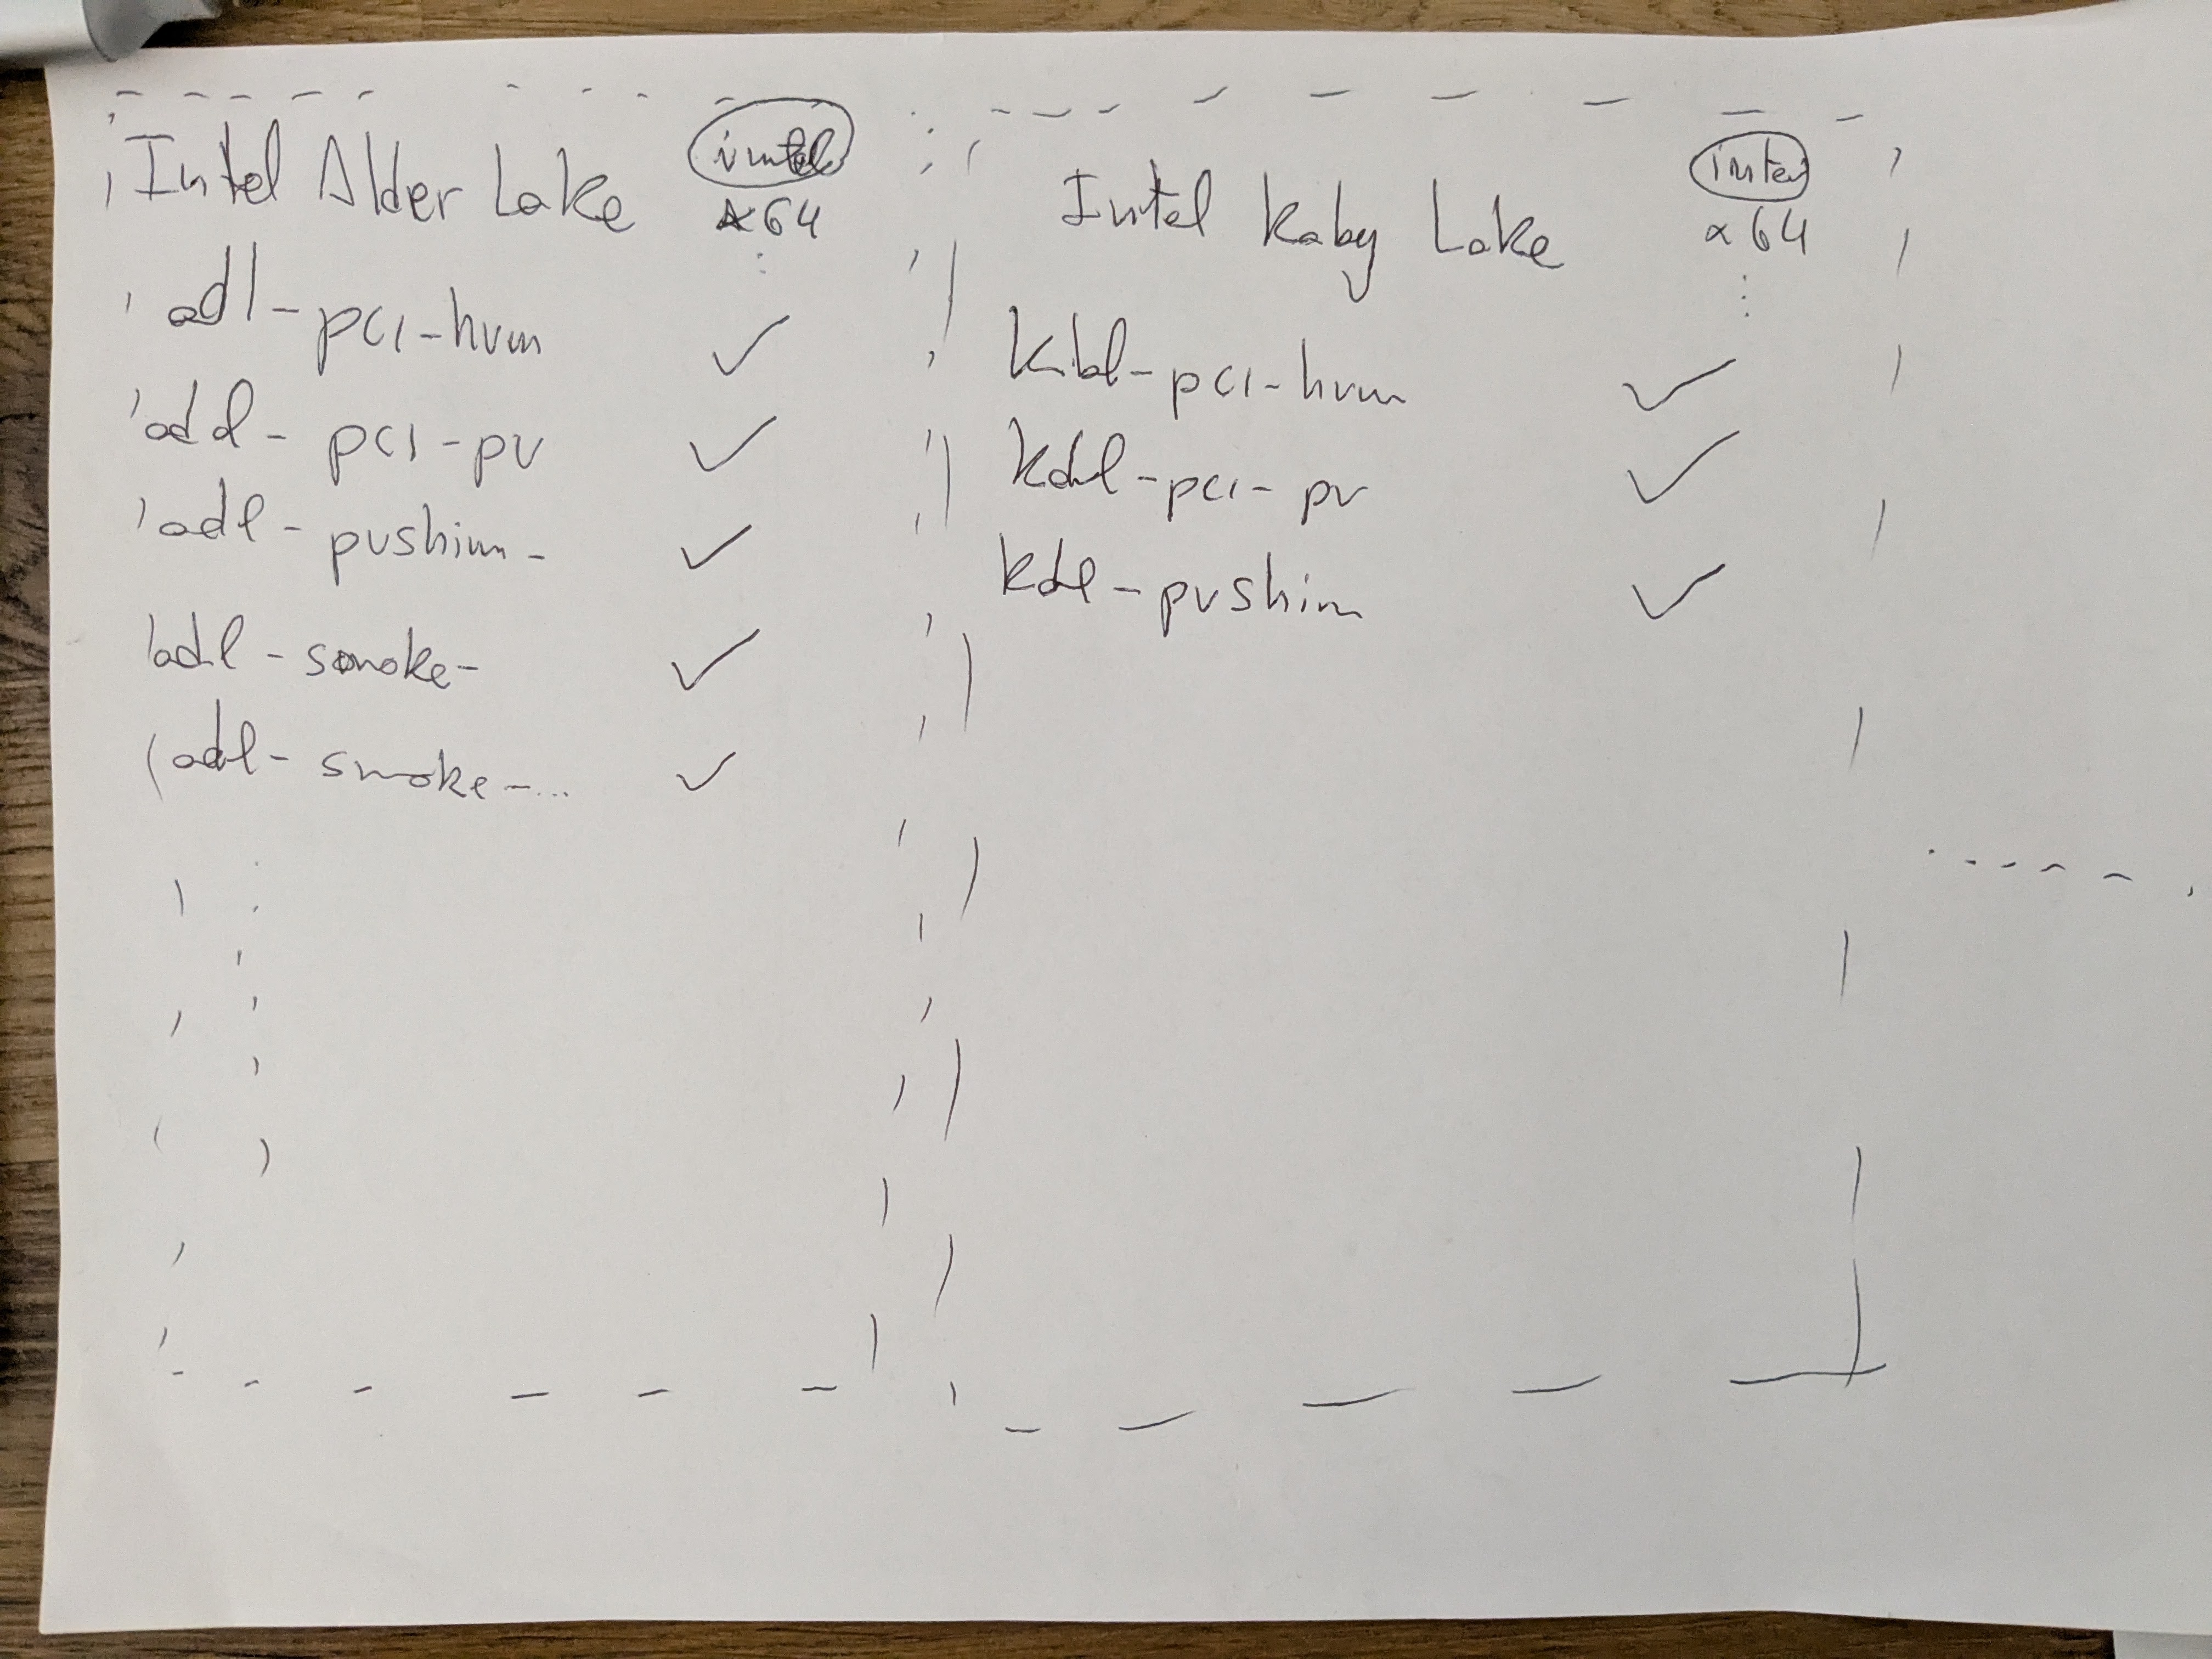 Intel Alder Lake intel
x64
adl-pci-hvm ✓
adl-pci-pv ✓
adl-pvshim- ✓
adl-smoke- ✓
adl-smoke-... ✓
Intel Kaby Lake intel
x64
Kbl-pci-hvm ✓
kdl-pci-pv ✓
kdl-pvshim ✓